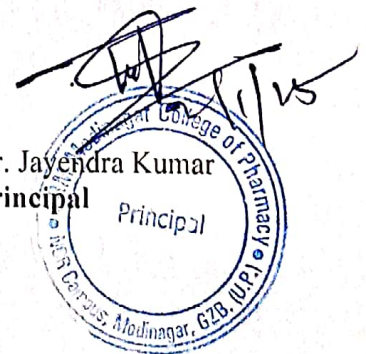 r. Jayendra Kumar
rincipal
Modinagar College of Pharmacy
Principal
NCR Campus, Modinagar, GZB. (U.P.)